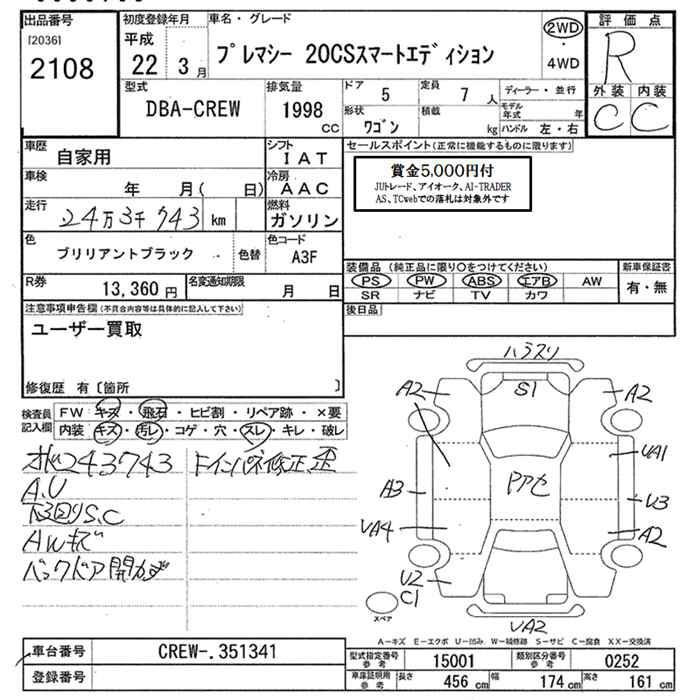 出品番号 初度登録年月 車名・グレード 評価点
[2036] 平成
2108 22年 3月 プレマシー 20CSスマートエディション 2WD・4WD R
型式 排気量 ドア 定員 ディーラー・並行 外装 内装
DBA-CREW 1998cc 5 7人 モデル年式 年 C C
形状 積載
ワゴン kg ハンドル 左・右
車歴 シフト セールスポイント(正常に機能するものに限ります)
自家用 IAT
車検 冷房 賞金5,000円付
年 月(日) AAC JUトレード、アイオーク、AI-TRADER
AS、TCwebでの落札は対象外です
走行 燃料
24万3千743 km ガソリン
色 色コード
ブリリアントブラック 色替 A3F
装備品(純正品に限り○をつけてください) 新車保証書
R券 名変通知期限 PS PW ABS エアB AW 有・無
13,360円 月 日 SR ナビ TV カワ
注意事項申告欄(不具合内容等は具体的に記入して下さい) 後日品
ユーザー買取
修復歴 有〔箇所 〕
検査員記入欄 FW キズ・飛石・ヒビ割・リペア跡・×要
内装 キズ・汚レ・コゲ・穴・スレ・キレ・破レ
243743
A.U
下回りS,C
AWキズ
バックドア開カず
ハラスリ
S1
A2 A2
UA1
A3 U3
UA4 A2
U2
C1
スペア
UA2
A-キズ E-エクボ U-凹み W-補修跡 S-サビ C-腐食 XX-交換済
車台番号 CREW-.351341 型式指定番号参考 15001 類別区分番号参考 0252
登録番号 車庫証明用参考 長さ 456cm 幅 174cm 高さ 161cm